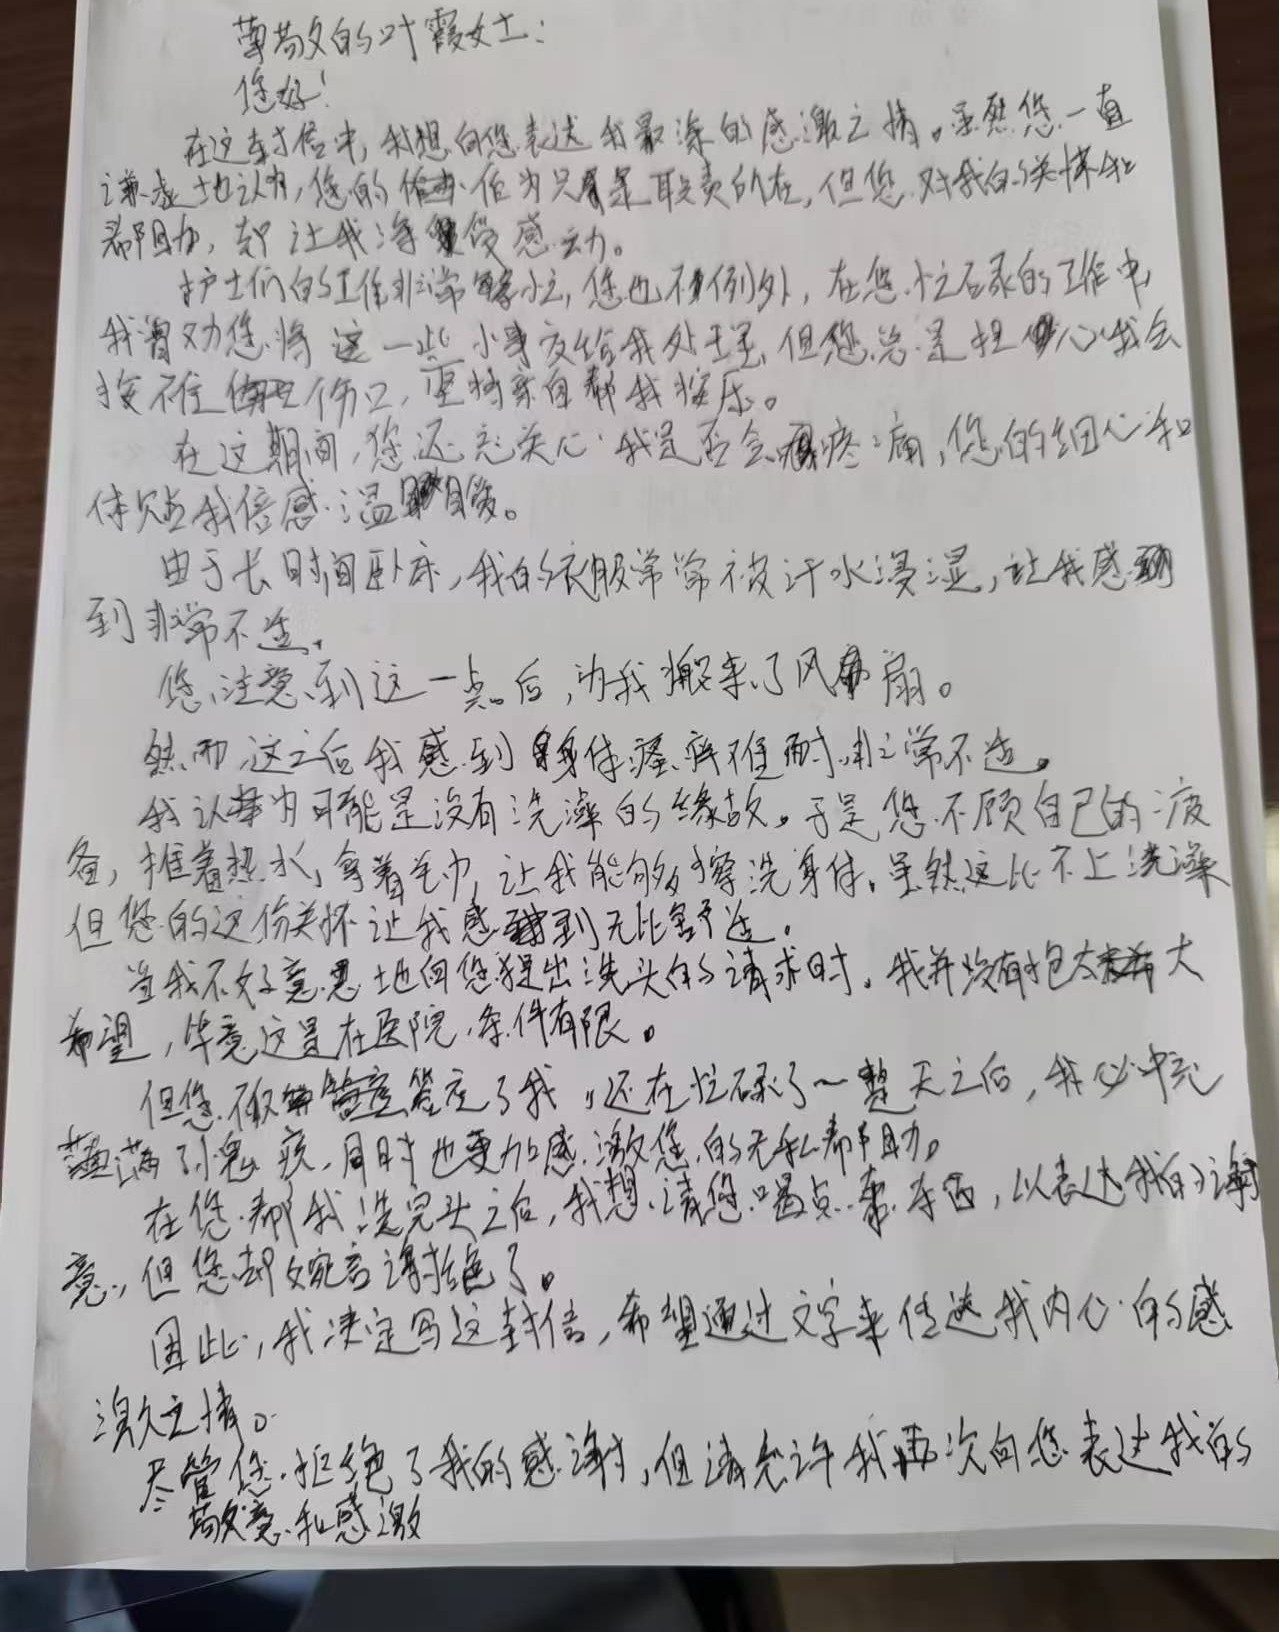 尊敬的叶霞女士:
您好!
在这封信中,我想向您表达我最深的感激之情。虽然您一直
谦虚地认为,您的作为只是职责所在,但您对我的关怀和
帮助,却让我深受感动。
护士们的工作非常繁忙,您也不例外,在您忙碌的工作中,
我曾劝您将这一些小事交给我处理,但您总是担心我会
按不住伤口,坚持亲自帮我按压。
在这期间,您还关心我是否会疼痛,您的细心和
体贴我倍感温暖。
由于长时间卧床,我的衣服常常被汗水浸湿,让我感
到非常不适。
您注意到这一点后,为我搬来了风扇。
然而,这之后我感到身体瘙痒难耐,非常不适。
我认为可能是没有洗澡的缘故。于是您不顾自己的疲
备,推着热水,拿着毛巾,让我能够擦洗身体。虽然这比不上洗澡
但您的这份关怀让我感到无比舒适。
当我不好意思地向您提出洗头的请求时。我并没有抱太大
希望,毕竟这是在医院,条件有限。
但您不仅答应了我,还在忙碌了一整天之后,我心中充
满了愧疚,同时也更加感激您的无私帮助。
在您帮我洗完头之后,我想请您喝点东西,以表达我的谢
意,但您却婉言谢绝了。
因此,我决定写这封信,希望通过文字来传达我内心的感
激之情。
尽管您拒绝了我的感谢,但请允许我再次向您表达我的
敬意和感激